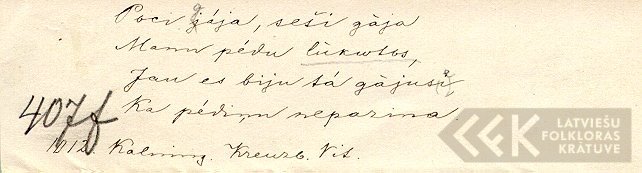 Poci gája, seši gāja
Mann pédu lūkwtos,
Jau es biju tá gājusi
Ka pédiņu neparina.
407f
1012. Kalning. Kreuzb. Vit.
LATVIEŠU
FOLKLORAS
KRĀTUVE